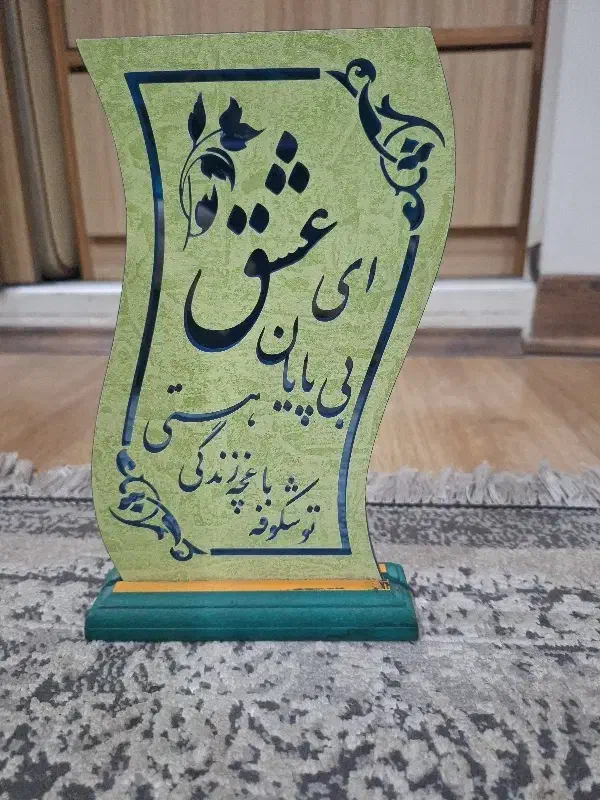 ای عشق
بی پایان
هستی
تو شکوفه باغچه زندگی